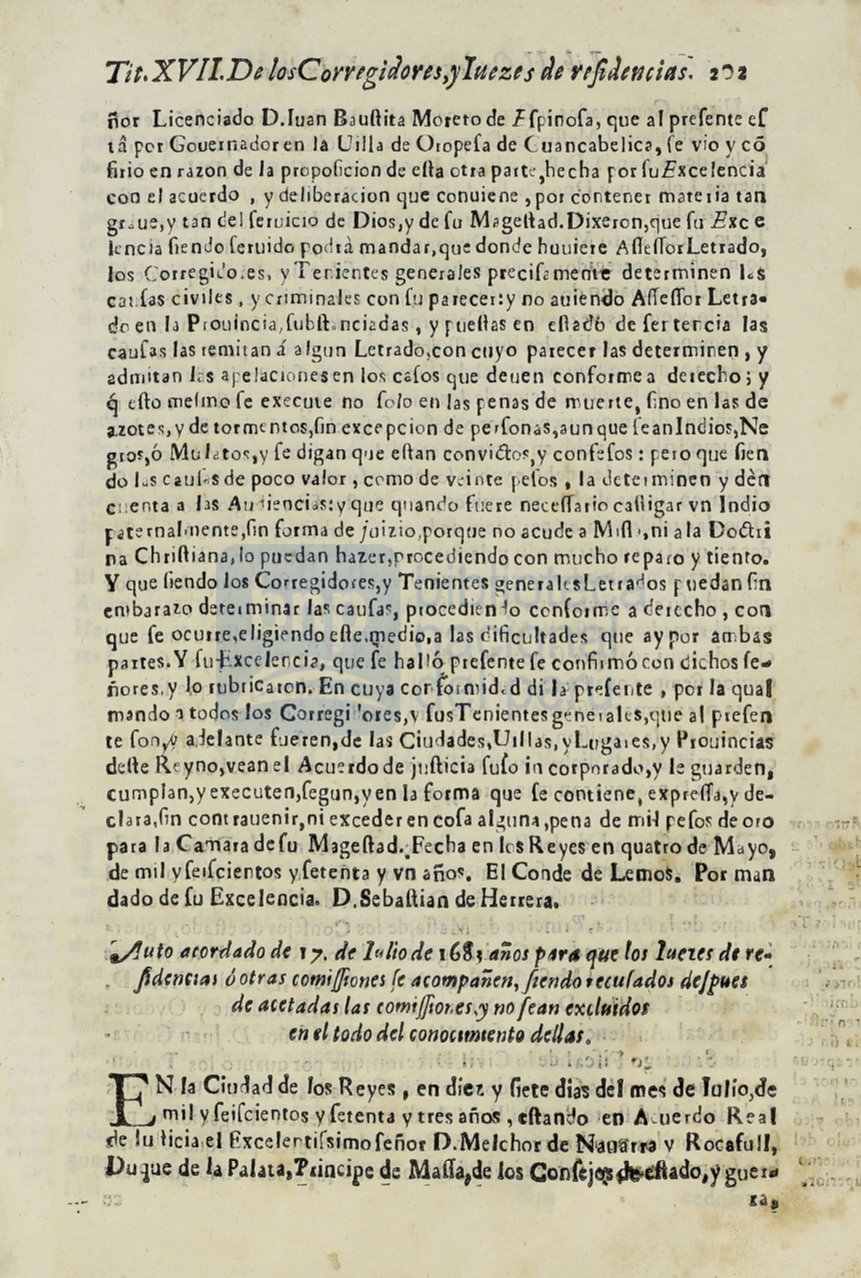 Tit.XVII.De los Corregidores,y Iuezes de residencias. 202
ñor Licenciado D.Iuan Bauſtita Moreto de Eſpinoſa, que al preſente eſ
tâ por Gouernador en la Uilla de Oropeſa de Guancabelica, ſe vio y cõ
firio en razon de la propoſicion de eſta otra parte,hecha por ſu Excelencia
con el acuerdo , y deliberacion que conuiene , por contener materia tan
graue,y tan del ſeruicio de Dios,y de ſu Mageſtad.Dixeron,que ſu Exce
lencia ſiendo ſeruido podrà mandar,que donde huuiere Aſſeſſor Letrado,
los Corregidores, y Tenientes generales preciſamente determinen las
cauſas civiles , y criminales con ſu parecer:y no auiendo Aſſeſſor Letra-
do en la Prouincia,ſubſtanciadas , y pueſtas en eſtado de ſentencia las
cauſas las remitan á algun Letrado,con cuyo parecer las determinen , y
admitan las apelaciones en los caſos que deuen conforme a derecho; y
q̃ eſto meſmo ſe execute no ſolo en las penas de muerte, ſino en las de
azotes,y de tormentos,ſin excepcion de perſonas,aunque ſean Indios,Ne
gros,ó Mulatos,y ſe digan que eſtan convictos,y confeſos : pero que ſien
do las cauſas de poco valor , como de veinte peſos , la determinen y dèn
cuenta a las Audiencias:y que quando fuere neceſſario caſtigar vn Indio
paternalmente,ſin forma de juizio,porque no acude a Miſſa,ni a la Doctri
na Chriſtiana,lo puedan hazer,procediendo con mucho reparo y tiento.
Y que ſiendo los Corregidores,y Tenientes generales Letrados puedan ſin
embarazo determinar las cauſas, procediendo conforme a derecho , con
que ſe ocurre,eligiendo eſte medio,a las dificultades que ay por ambas
partes.Y ſu Excelencia, que ſe halló preſente ſe confirmó con dichos ſe-
ñores,y lo rubricaron. En cuya conformidad di la preſente , por la qual
mando a todos los Corregidores,y ſus Tenientes generales,que al preſen
te ſon,y adelante fueren,de las Ciudades,Uillas,y Lugares,y Prouincias
deſte Reyno,vean el Acuerdo de juſticia ſuſo incorporado,y le guarden,
cumplan,y executen,ſegun,y en la forma que ſe contiene, expreſſa,y de-
clara,ſin contrauenir,ni exceder en coſa alguna,pena de mil peſos de oro
para la Camara de ſu Mageſtad. Fecha en los Reyes en quatro de Mayo,
de mil y ſeiſcientos y ſetenta y vn años. El Conde de Lemos. Por man
dado de ſu Excelencia. D.Sebaſtian de Herrera.
Auto acordado de 17. de Iulio de 1683 años para que los Iuezes de re-
ſidencias ó otras comiſſiones ſe acompañen, ſiendo recuſados deſpues
de acetadas las comiſſiones,y no ſean excluidos
en el todo del conocimiento dellas.
EN la Ciudad de los Reyes , en diez y ſiete dias del mes de Iulio,de
mil y ſeiſcientos y ſetenta y tres años , eſtando en Acuerdo Real
de Iuſticia el Excelentiſsimo ſeñor D.Melchor de Nauarra y Rocafull,
Duque de la Palata,Principe de Maſſa,de los Conſejos de eſtado,y guer-
ra,